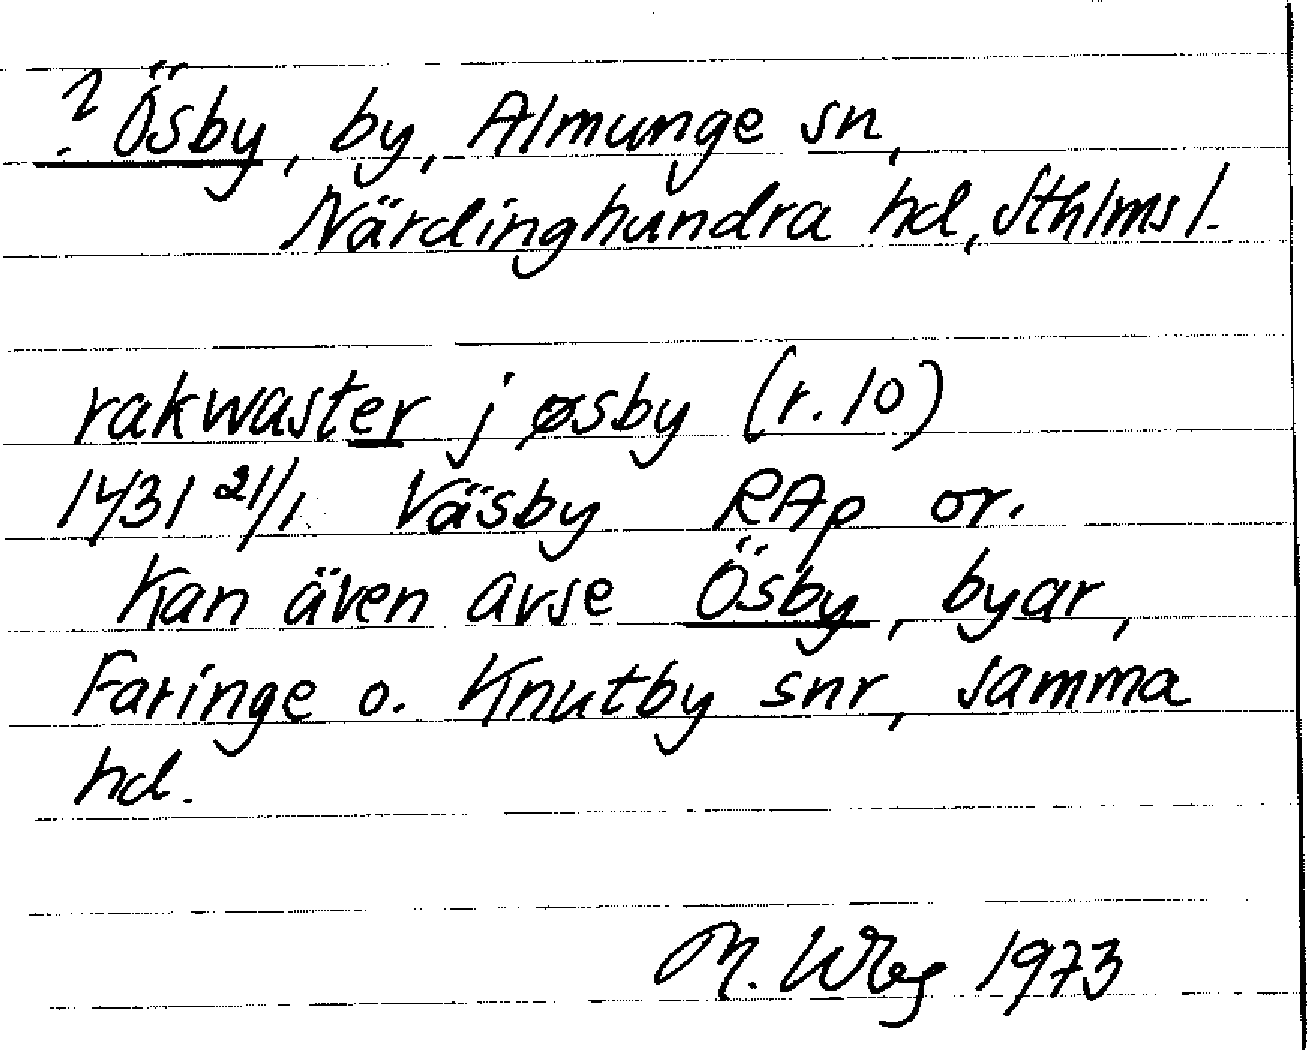 ? Ösby, by, Almunge sn,
Närdinghundra hd, Sthlms l.
rakwaster j øsby (r. 10)
1431 21/1 Väsby RAp or.
Kan även avse Ösby, byar,
Faringe o. Knutby snr, samma
hd.
M. Wbg 1973